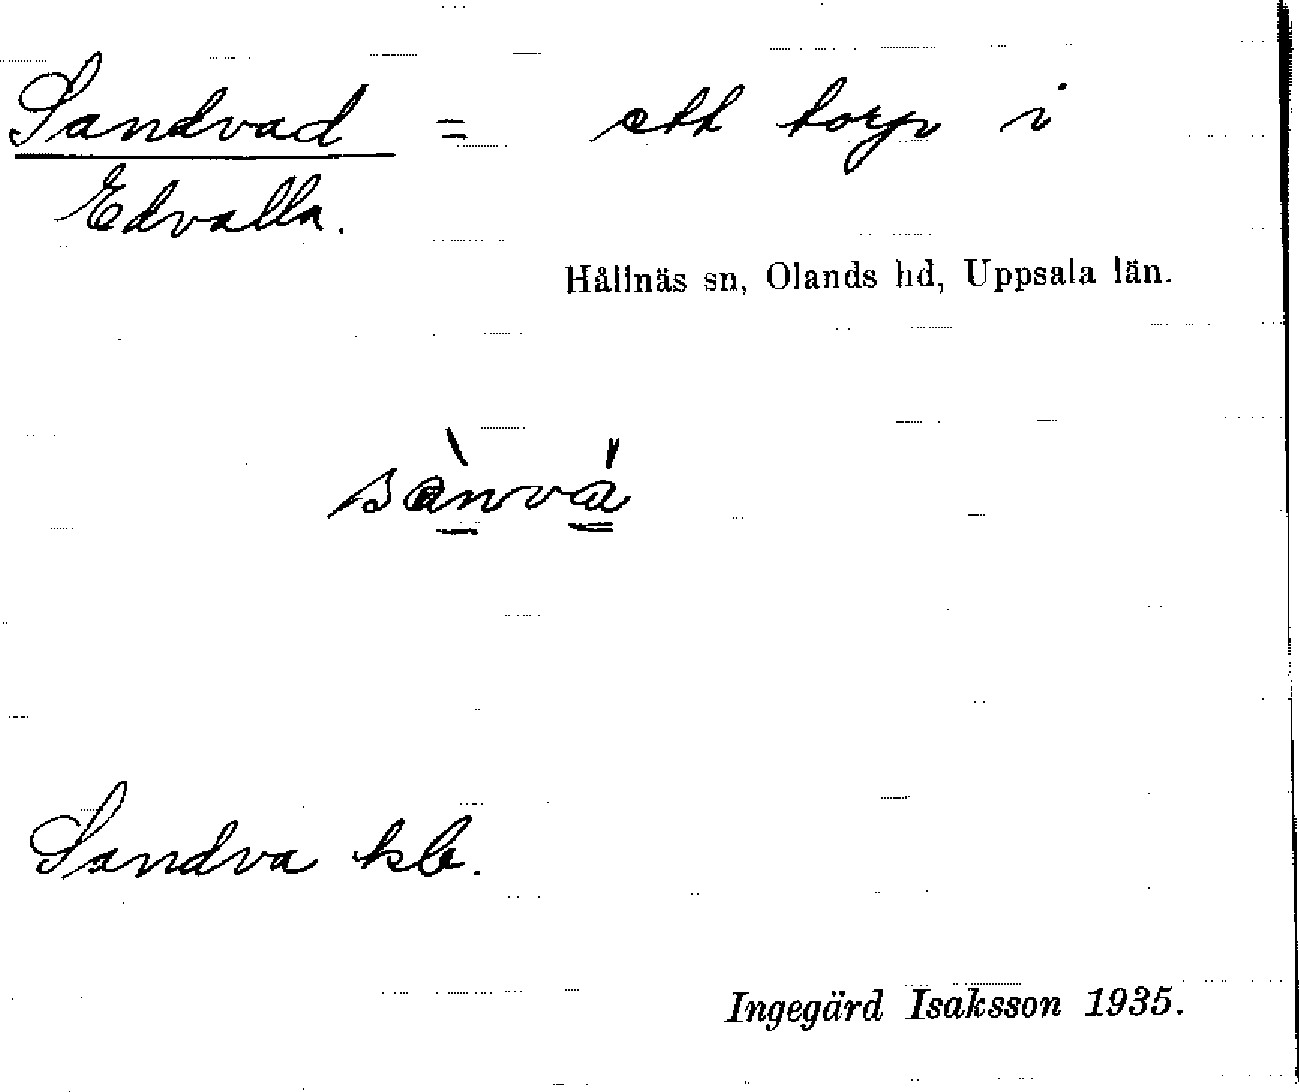 Sandvad = ett torp i
Edvalla.
Hållnäs sn, Olands hd, Uppsala län.
sànvá
Sandva kb.
Ingegärd Isaksson 1935.